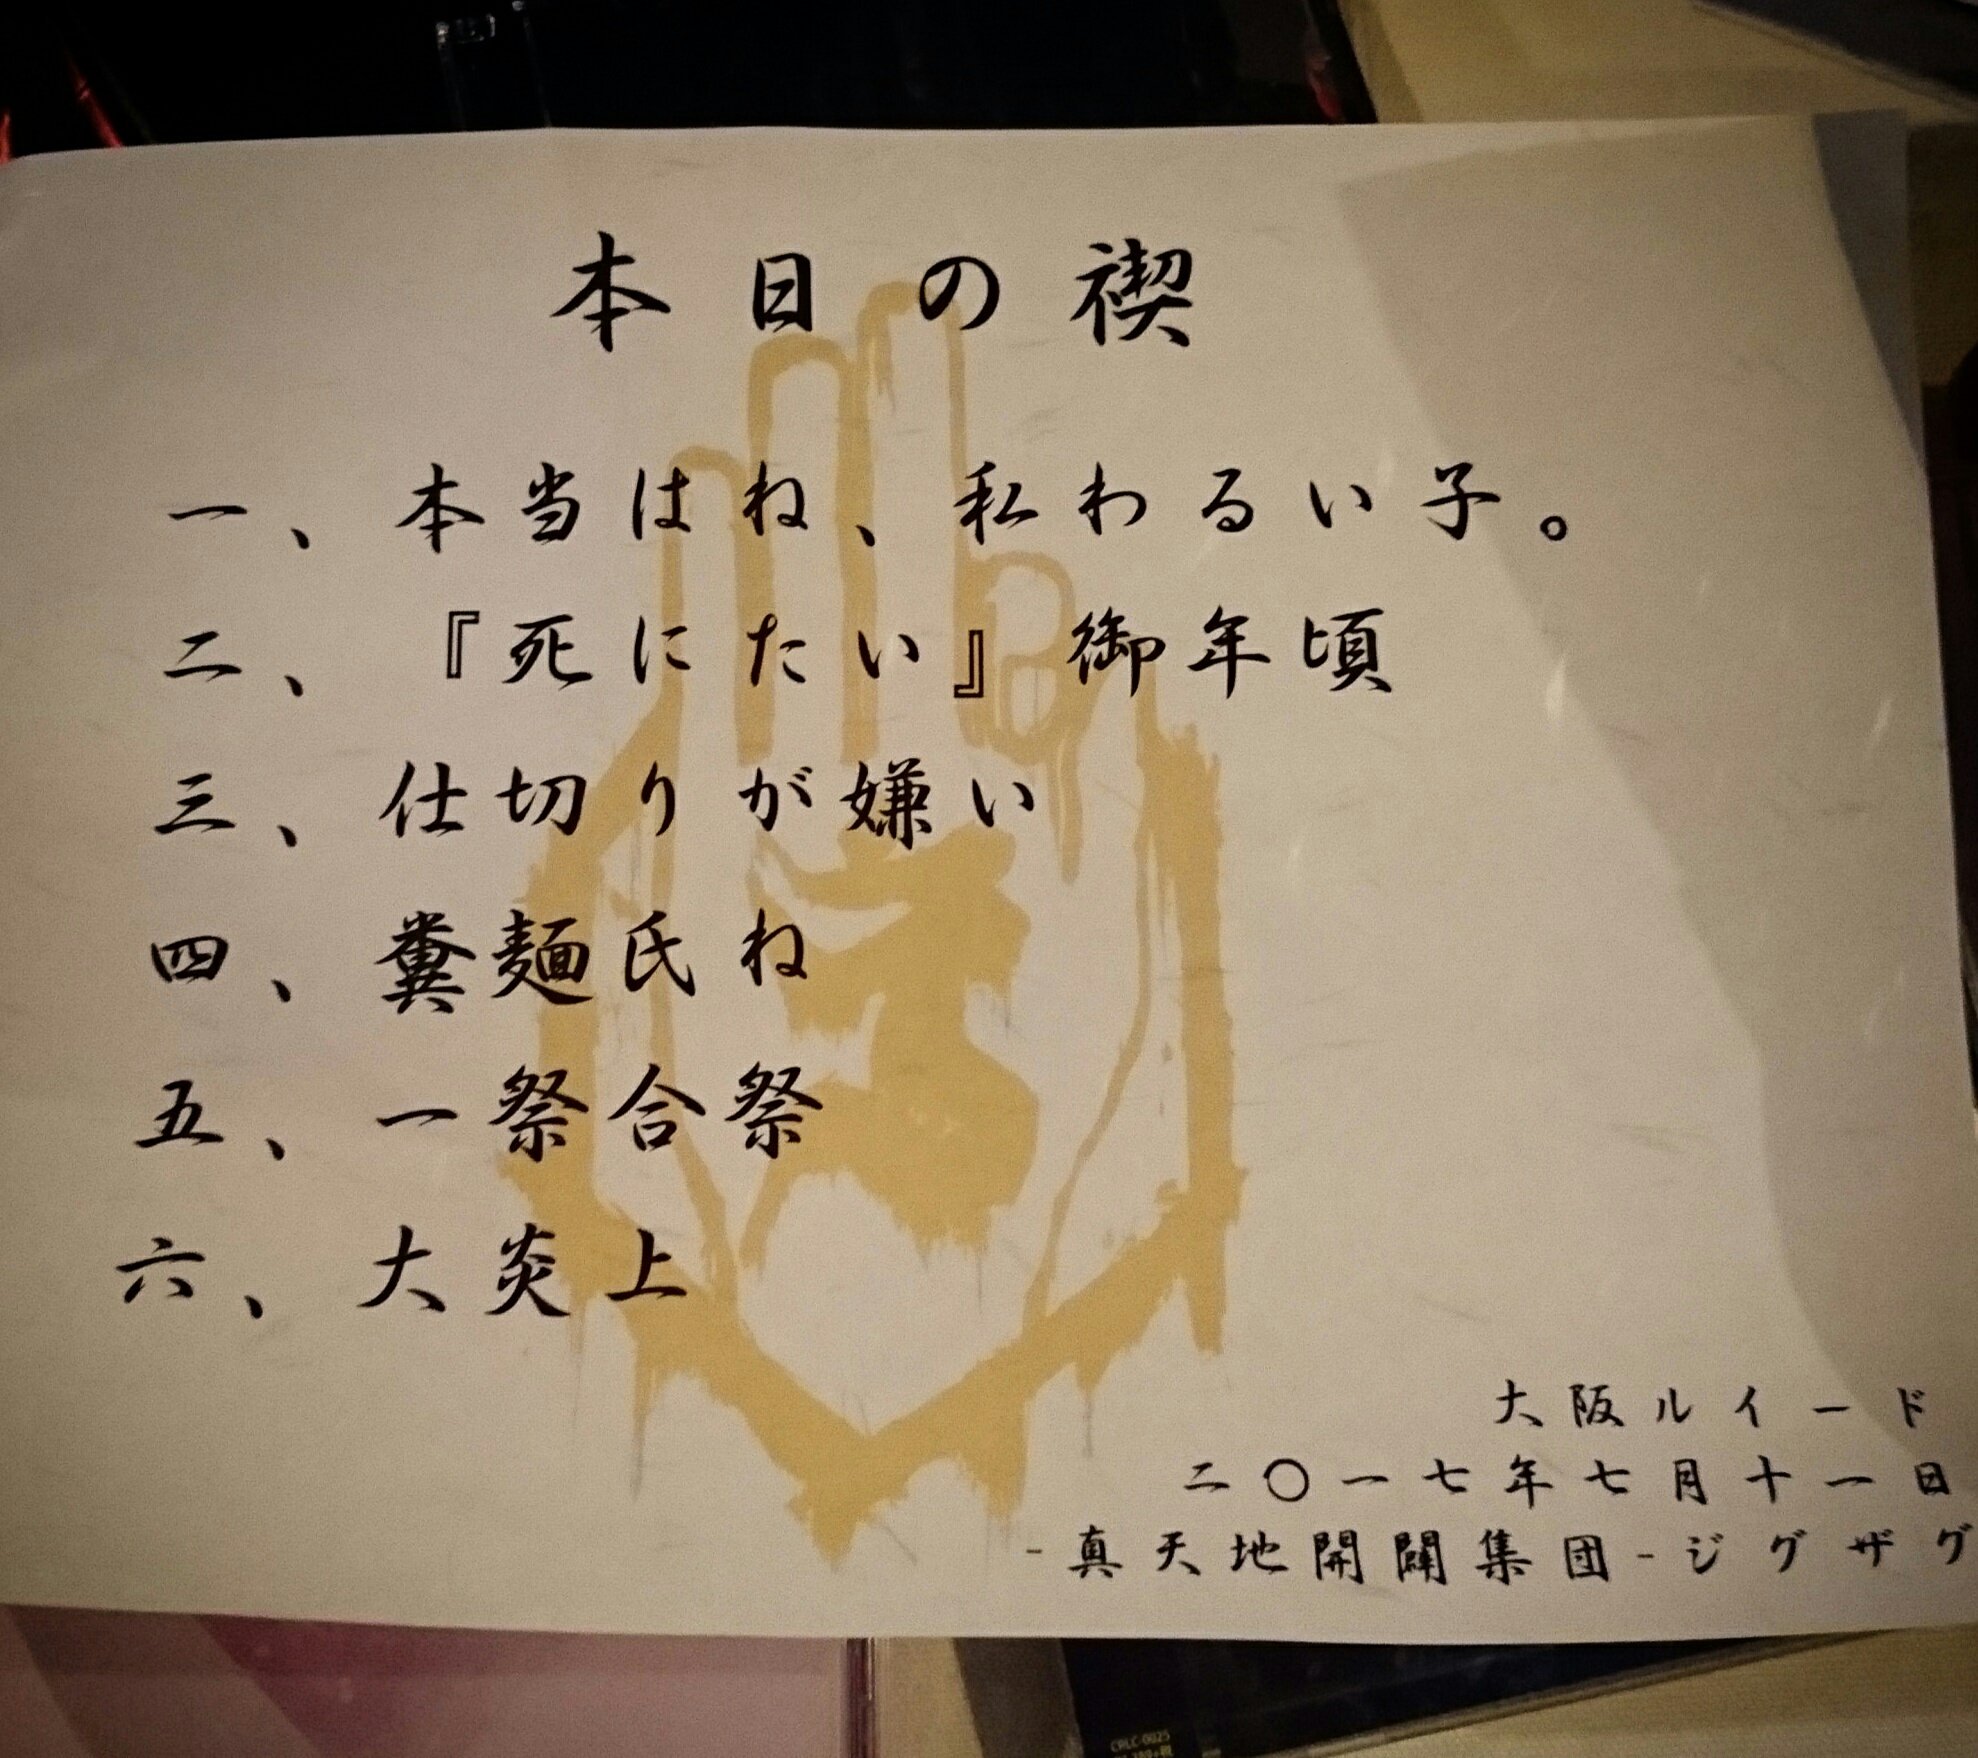 本日の禊
一、本当はね、私わるい子。
二、『死にたい』御年頃
三、仕切りが嫌い
四、糞麺氏ね
五、一祭合祭
六、大炎上
大阪ルイード
二〇一七年七月十一日
-真天地開闢集団-ジグザグ
CPLC-0025